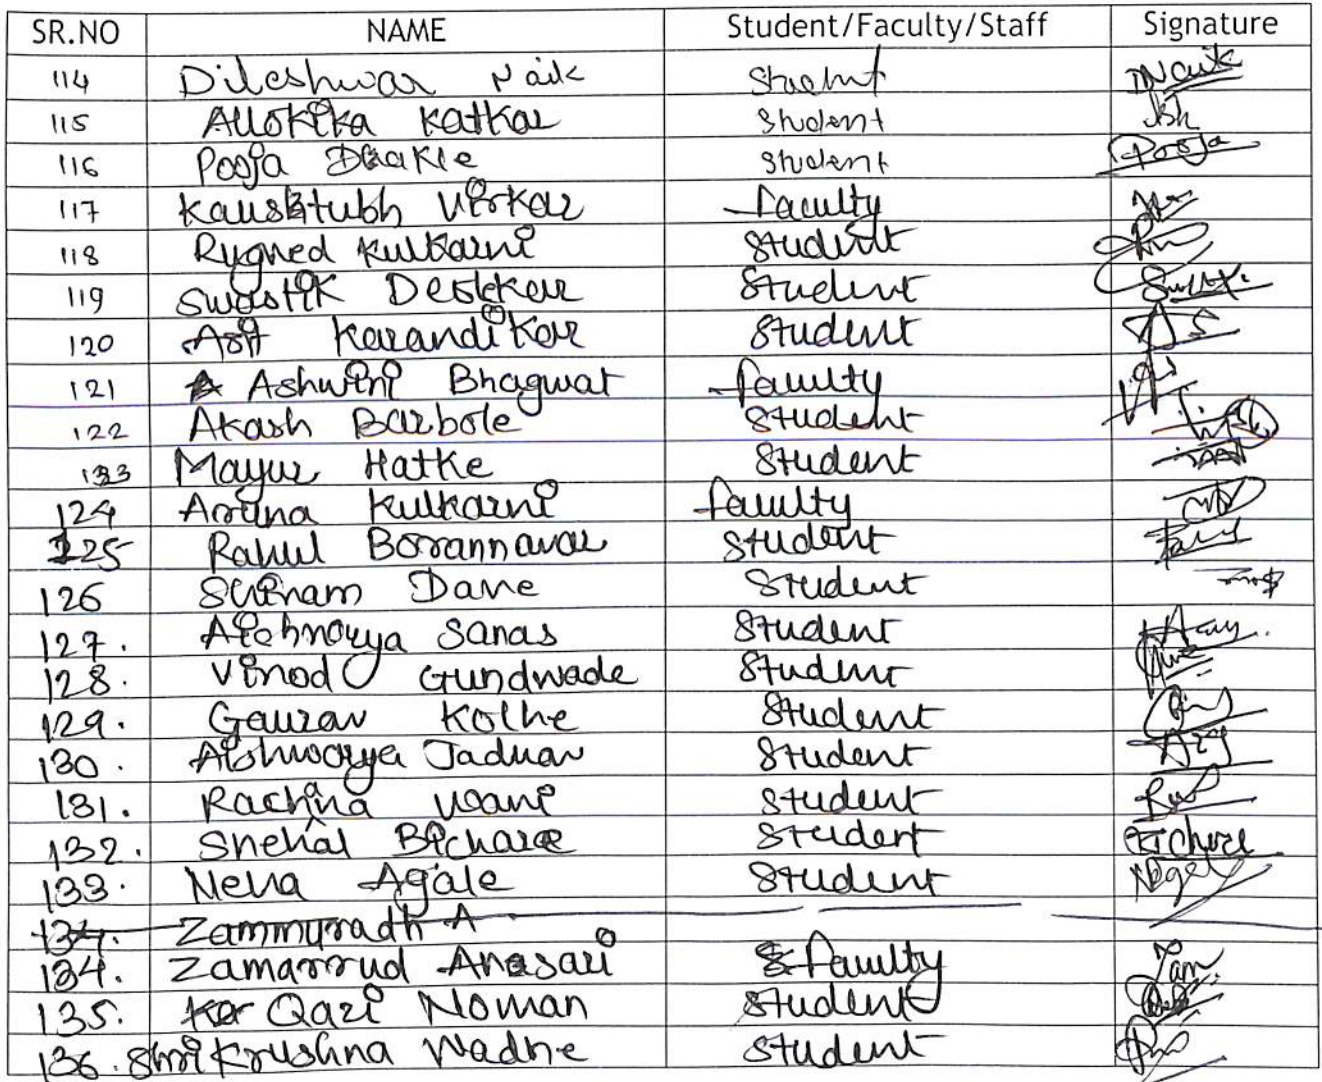 SR.NO NAME Student/Faculty/Staff Signature
114 Dileshwar Naik Student DNaik
115 Allokika Katkar Student
116 Pooja Student Pooja
117 Kaustubh Virkar Faculty
118 Kulkarni Student
119 Swastik Deolekar Student
120 Asit Karandikar Student
121 Ashwini Bhagwat Faculty
122 Akash Barbole Student
133 Mayur Hatke Student
124 Aruna Kulkarni Faculty
125 Rahul Borannavar Student
126 Dave Student
127. Aishwarya Sanas Student
128. Vinod Gundwade Student
129. Gaurav Kolhe Student
130. Aishwarya Jadhav Student
131. Rachana Wani Student
132. Snehal Bichare Student Bichare
133. Neha Agale Student
134. Zammuradh A
134. Zamarrud Anasari Faculty Zam
135. Qazi Noman Student
136. Shri Krushna Wadhe Student